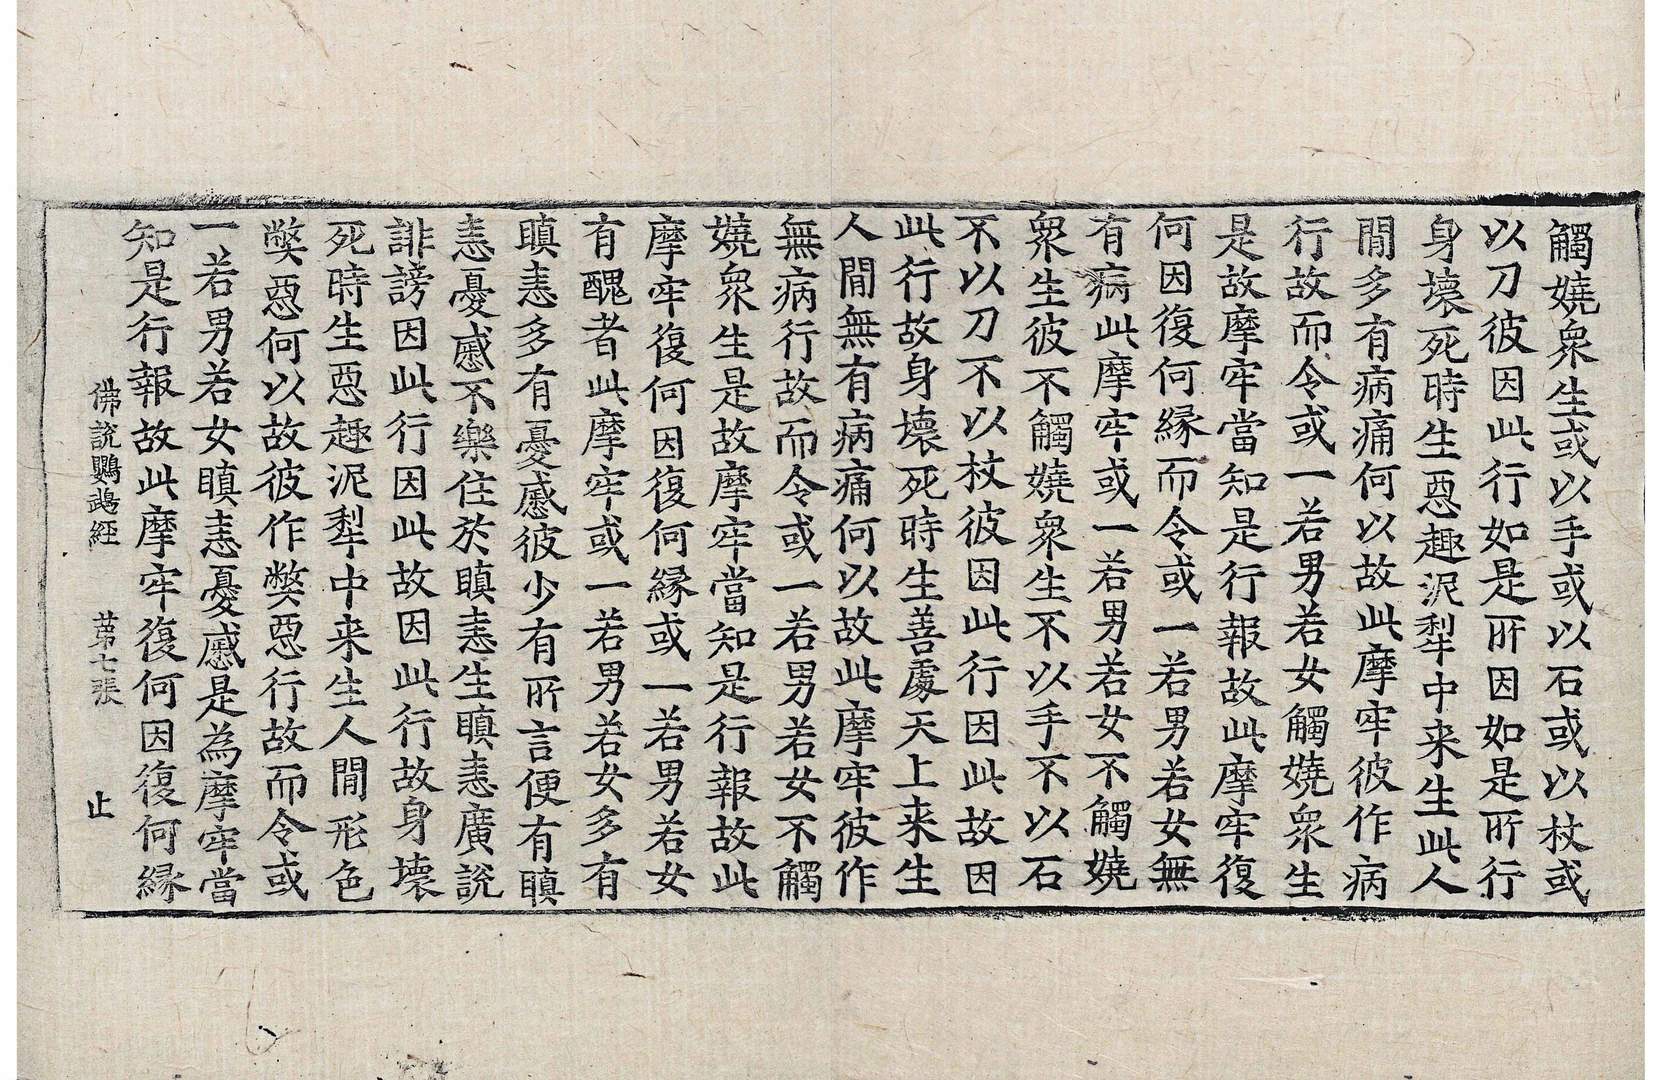 觸嬈衆生或以手或以石或以杖或
以刀彼因此行如是所因如是所行
身壞死時生惡趣泥犁中来生此人
閒多有病痛何以故此摩牢彼作病
行故而令或一若男若女觸嬈衆生
是故摩牢當知是行報故此摩牢復
何因復何緣而令或一若男若女無
有病此摩牢或一若男若女不觸嬈
衆生彼不觸嬈衆生不以手不以石
不以刀不以杖彼因此行因此故因
此行故身壞死時生善處天上来生
人閒無有病痛何以故此摩牢彼作
無病行故而令或一若男若女不觸
嬈衆生是故摩牢當知是行報故此
摩牢復何因復何緣或一若男若女
有醜者此摩牢或一若男若女多有
瞋恚多有憂慼彼少有所言便有瞋
恚憂慼不樂住於瞋恚生瞋恚廣說
誹謗因此行因此故因此行故身壞
死時生惡趣泥犁中来生人閒形色
弊惡何以故彼作弊惡行故而令或
一若男若女瞋恚憂慼是為摩牢當
知是行報故此摩牢復何因復何緣
佛說鸚鵡經 第七張 止